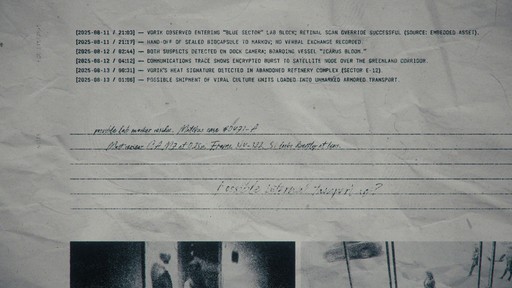 [2025-08-11 / 21:03] — VORIK OBSERVED ENTERING "BLUE SECTOR" LAB BLOCK; RETINAL SCAN OVERRIDE SUCCESSFUL (SOURCE: EMBEDDED ASSET).
[2025-08-11 / 21:17] — HAND-OFF OF SEALED BIOCAPSULE TO MARKOV; NO VERBAL EXCHANGE RECORDED.
[2025-08-11 / 02:44] — BOTH SUSPECTS DETECTED ON DOCK CAMERA; BOARDING VESSEL "ICARUS BLOOM."
[2025-08-12 / 04:12] — COMMUNICATIONS TRACE SHOWS ENCRYPTED BURST TO SATELLITE NODE OVER THE GREENLAND CORRIDOR.
[2025-08-13 / 00:31] — VORIK'S HEAT SIGNATURE DETECTED IN ABANDONED REFINERY COMPLEX (SECTOR E-12).
[2025-08-13 / 01:06] — POSSIBLE SHIPMENT OF VIRAL CULTURE UNITS LOADED INTO UNMARKED ARMORED TRANSPORT.
possible lab worker
at 0.25x. Frames directly at
Possible internal